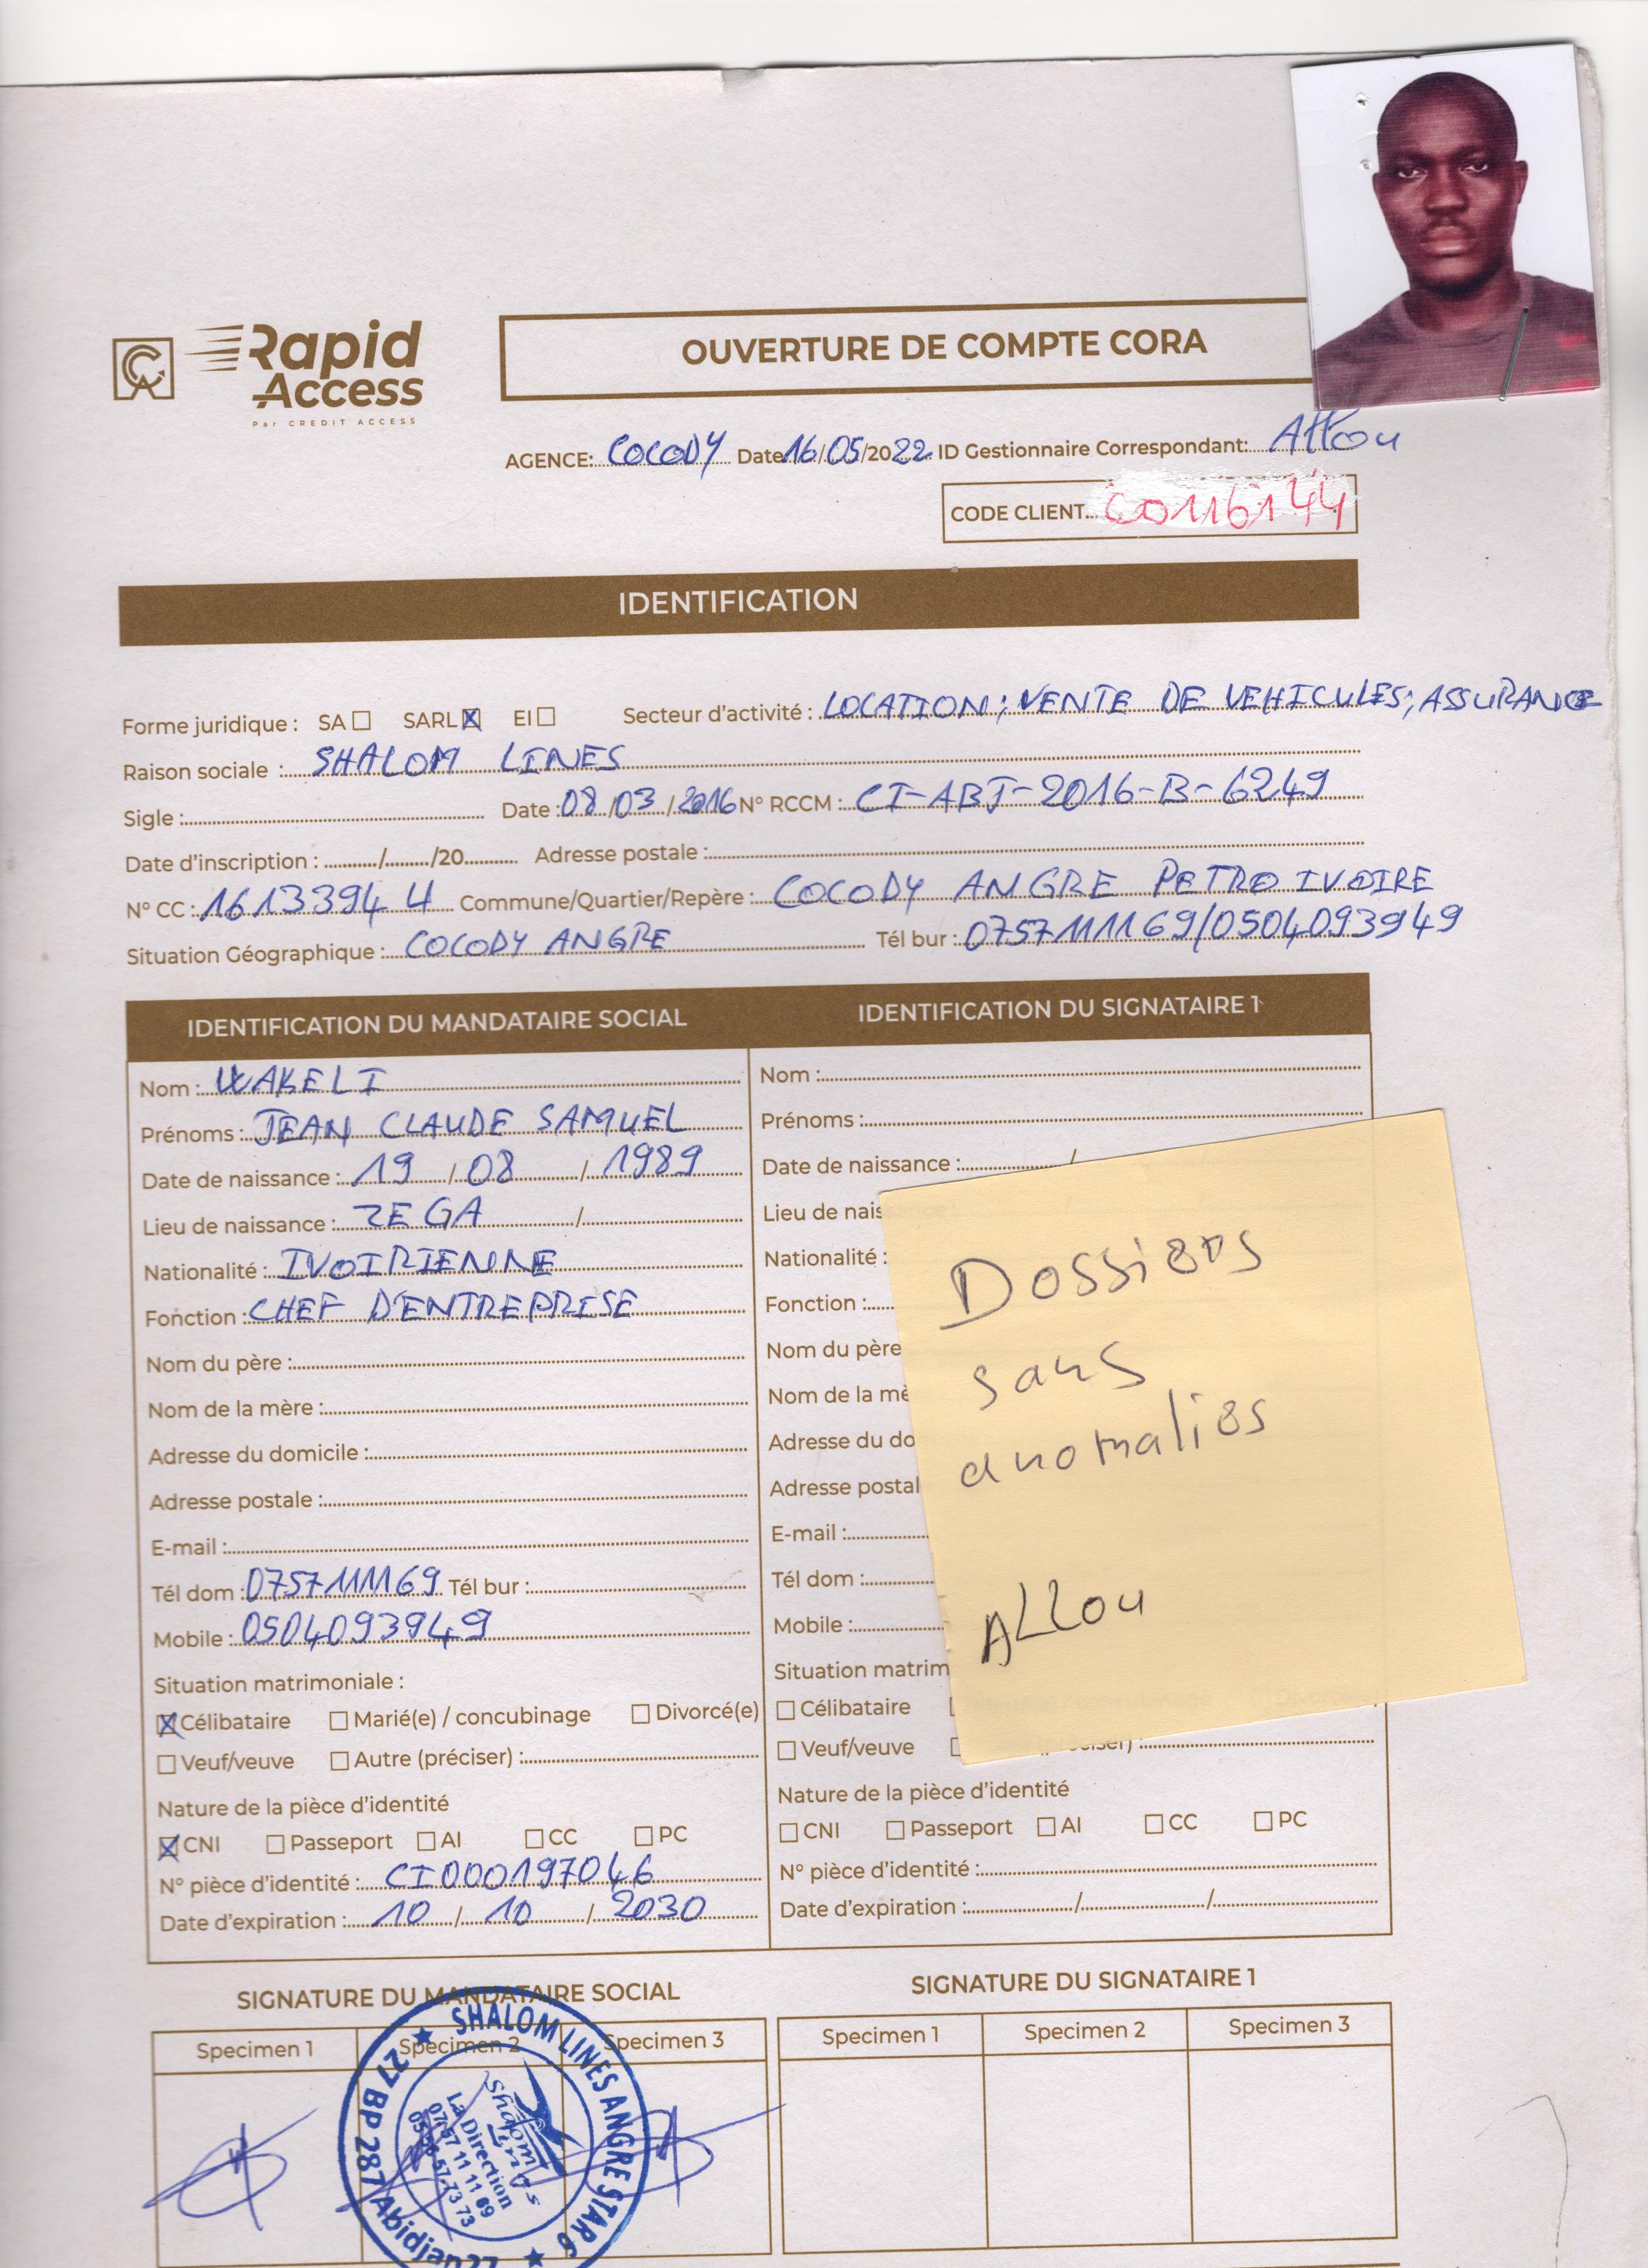 Rapid
Access
Par CREDIT ACCESS
OUVERTURE DE COMPTE CORA
AGENCE: COCODY Date 16/05/2022 ID Gestionnaire Correspondant: Allou
CODE CLIENT C0116144
IDENTIFICATION
Forme juridique : SA SARL EI Secteur d'activité : LOCATION; VENTE DE VEHICULES; ASSURANCE
Raison sociale : SHALOM LINES
Sigle : Date : 08/03/2016 N° RCCM : CI-ABJ-2016-B-6249
Date d'inscription : / /20 Adresse postale :
N° CC : 1613394 U Commune/Quartier/Repère : COCODY ANGRE PETRO IVOIRE
Situation Géographique : COCODY ANGRE Tél bur : 0757111169/0504093949
IDENTIFICATION DU MANDATAIRE SOCIAL
Nom : WAKELI
Prénoms : JEAN CLAUDE SAMUEL
Date de naissance : 19 / 08 / 1989
Lieu de naissance : ZEGA /
Nationalité : IVOIRIENNE
Fonction : CHEF D'ENTREPRISE
Nom du père :
Nom de la mère :
Adresse du domicile :
Adresse postale :
E-mail :
Tél dom : 0757111169 Tél bur :
Mobile : 0504093949
Situation matrimoniale :
Célibataire Marié(e) / concubinage Divorcé(e)
Veuf/veuve Autre (préciser) :
Nature de la pièce d'identité
CNI Passeport AI CC PC
N° pièce d'identité : CI000197046
Date d'expiration : 10 / 10 / 2030
IDENTIFICATION DU SIGNATAIRE 1
Nom :
Prénoms :
Date de naissance : /
Lieu de nais
Nationalité :
Fonction :
Nom du père
Nom de la mè
Adresse du do
Adresse postal
E-mail :
Tél dom :
Mobile :
Situation matrim
Célibataire
Veuf/veuve
Nature de la pièce d'identité
CNI Passeport AI CC PC
N° pièce d'identité :
Date d'expiration : / /
Dossiers
sans
anomalies
ALLou
SIGNATURE DU MANDATAIRE SOCIAL
Specimen 1 Specimen 2 Specimen 3
SIGNATURE DU SIGNATAIRE 1
Specimen 1 Specimen 2 Specimen 3
SHALOM LINES ANGRE STAR 6
27 BP 287 Abidjan 27
Shalom
Lines
La Direction